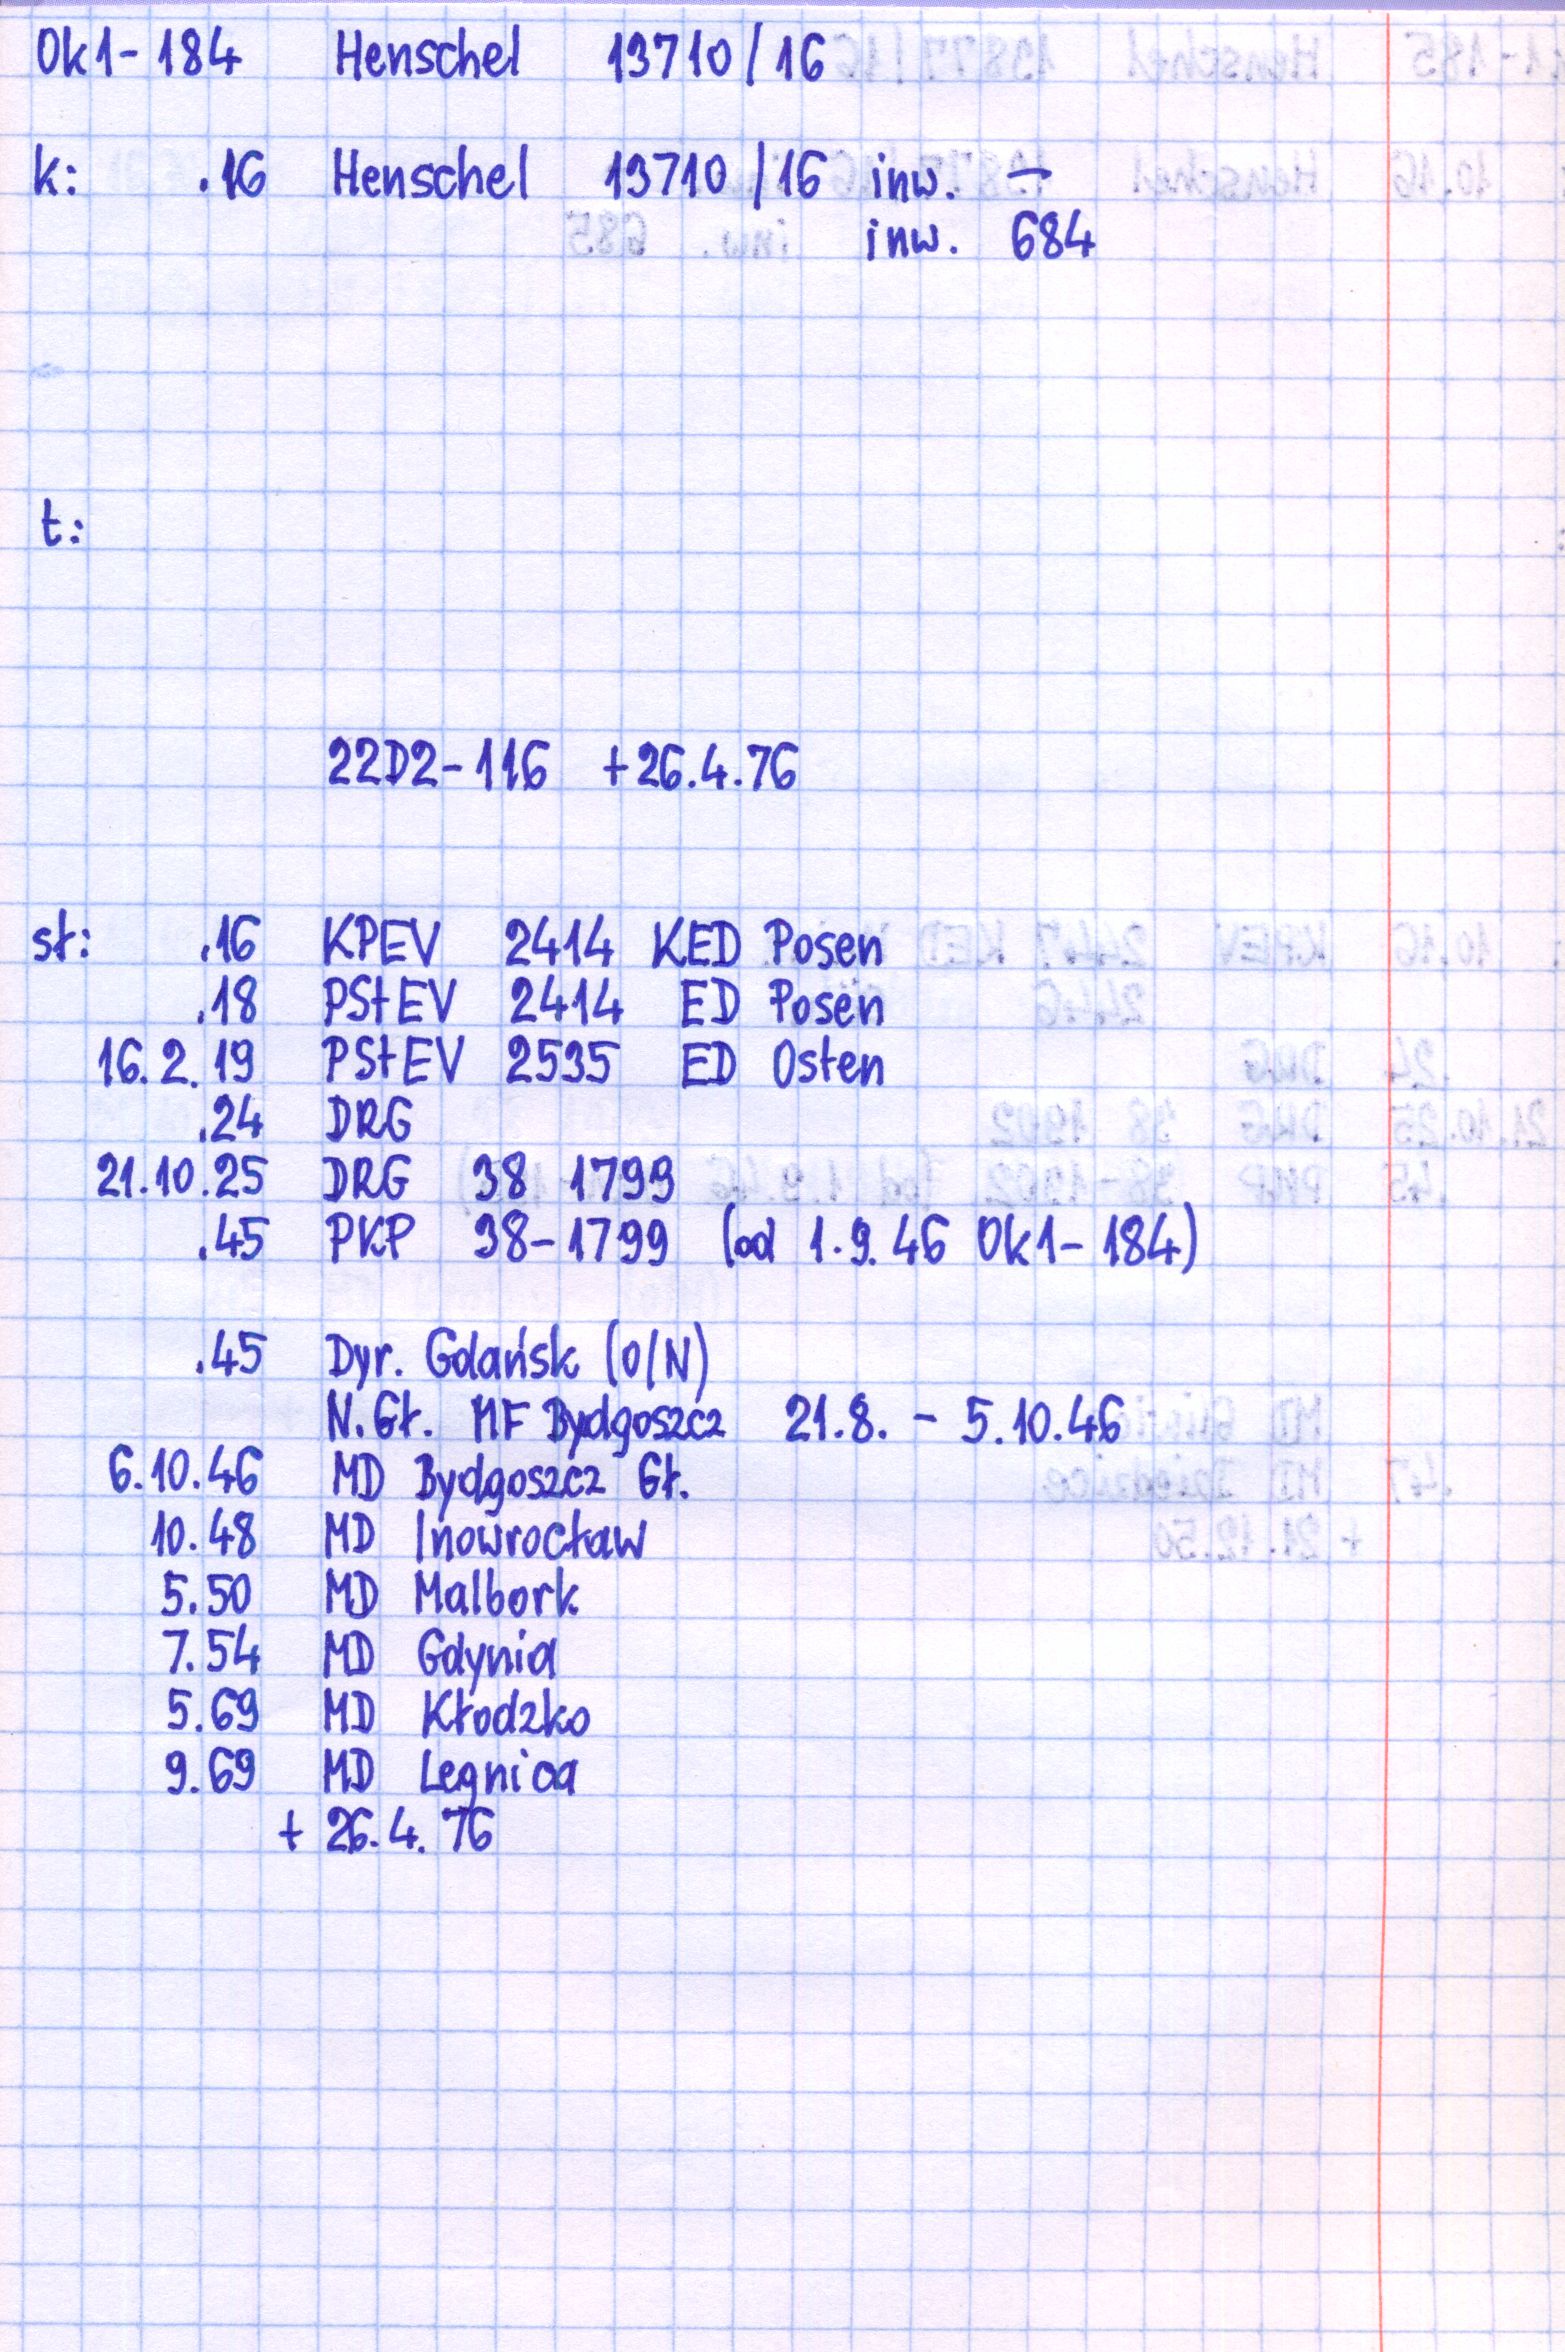 Ok1-184 Henschel 13710/16
k: .16 Henschel 13710/16 inw. —
inw. 684
t:
22D2-116 +26.4.76
st: .16 KPEV 2414 KED Posen
.18 PStEV 2414 ED Posen
16.2.19 PStEV 2535 ED Osten
.24 DRG
21.10.25 DRG 38 1799
.45 PKP 38-1799 (od 1.9.46 Ok1-184)
.45 Dyr. Gdańsk (O/N)
N.Gł. MF Bydgoszcz 21.8. - 5.10.46
6.10.46 MD Bydgoszcz Gł.
10.48 MD Inowrocław
5.50 MD Malbork
7.54 MD Gdynia
5.69 MD Kłodzko
9.69 MD Legnica
+ 26.4.76